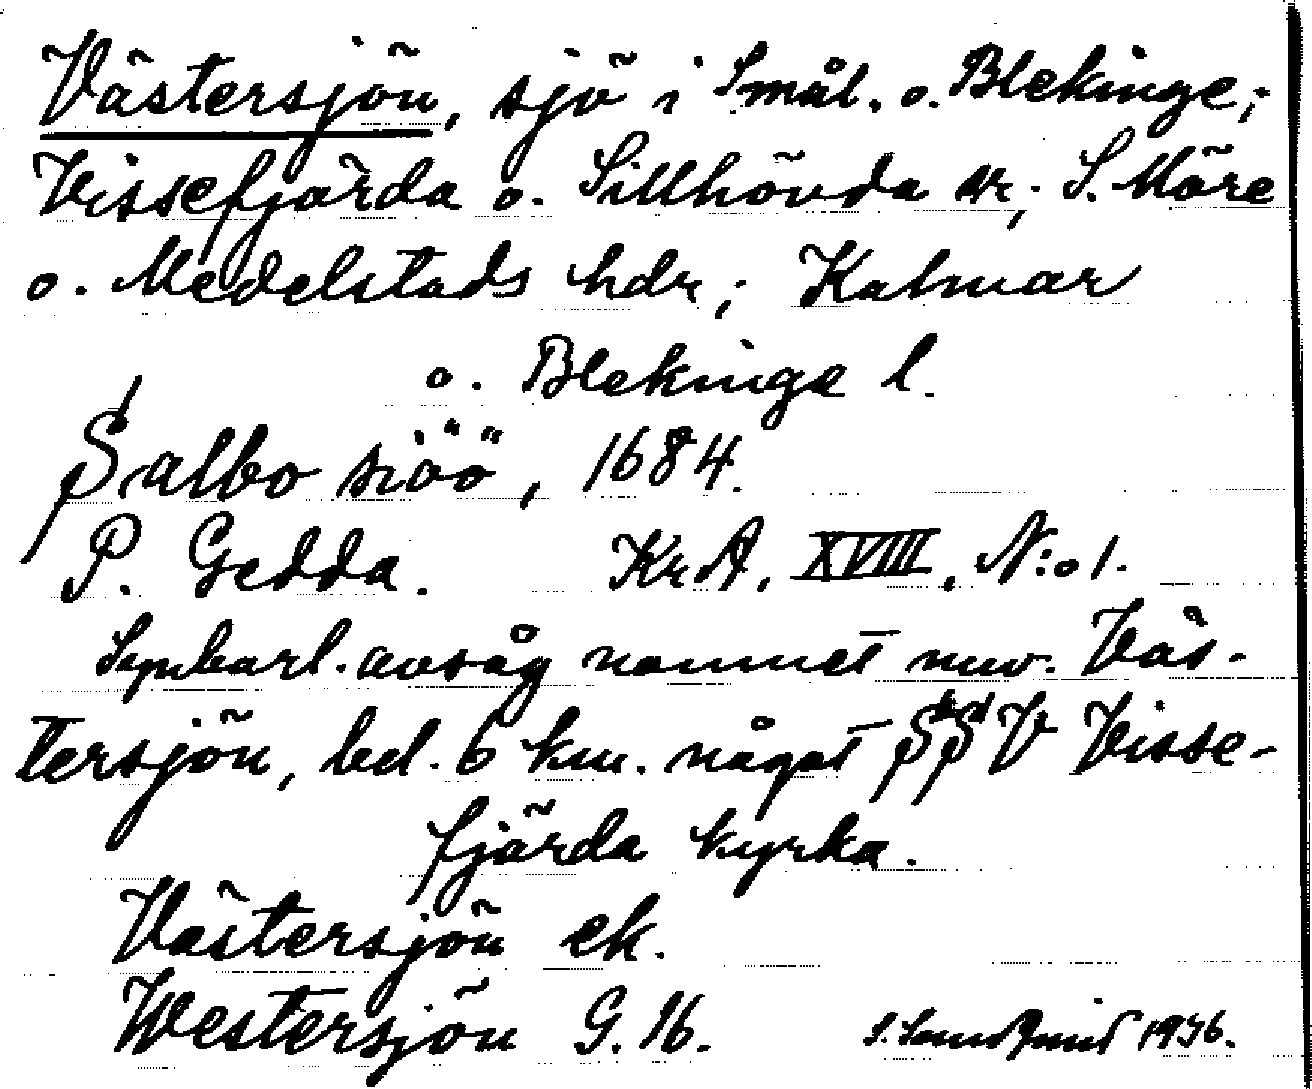 Västersjön, sjö i Smål. o. Blekinge;
Vissefjärda o. Sillhövda snr; S. Möre
o. Medelstads hdr; Kalmar
o. Blekinge l.
Salbo siöö, 1684.
P. Gedda. KrA, XVIII, N:o 1.
Synbarl. avsåg namnet nuv. Väs-
tersjön, bel. 6 km. något SSV Visse-
fjärda kyrka.
Västersjön ek.
Westersjön G. 16. 1936.